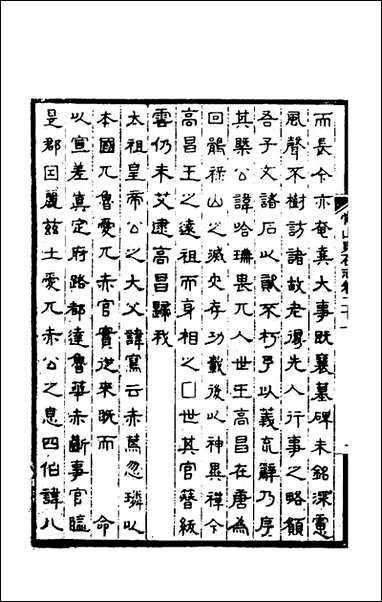 常山貞石志卷二十一
而長今亦奄真大事旣襄墓碑未銘深慮
風聲不樹訪諸故老得先人行事之略願
吾子文諸石以猷不朽予以義克辭乃序
其槩公諱哈璣畏兀人世王高昌在唐為
回鶻祿山之滅史存功載後以神異禪今
高昌王之遠祖而身相之□世其官簪紱
雲仍未艾逮高昌歸我
太祖皇帝公之大父諱寫云赤篤忽璘以
本國兀魯愛兀赤官實從來旣而 命
以宣差真定府路都達魯華赤斷事官臨
是郡因麗茲土愛兀赤公之息四伯諱八